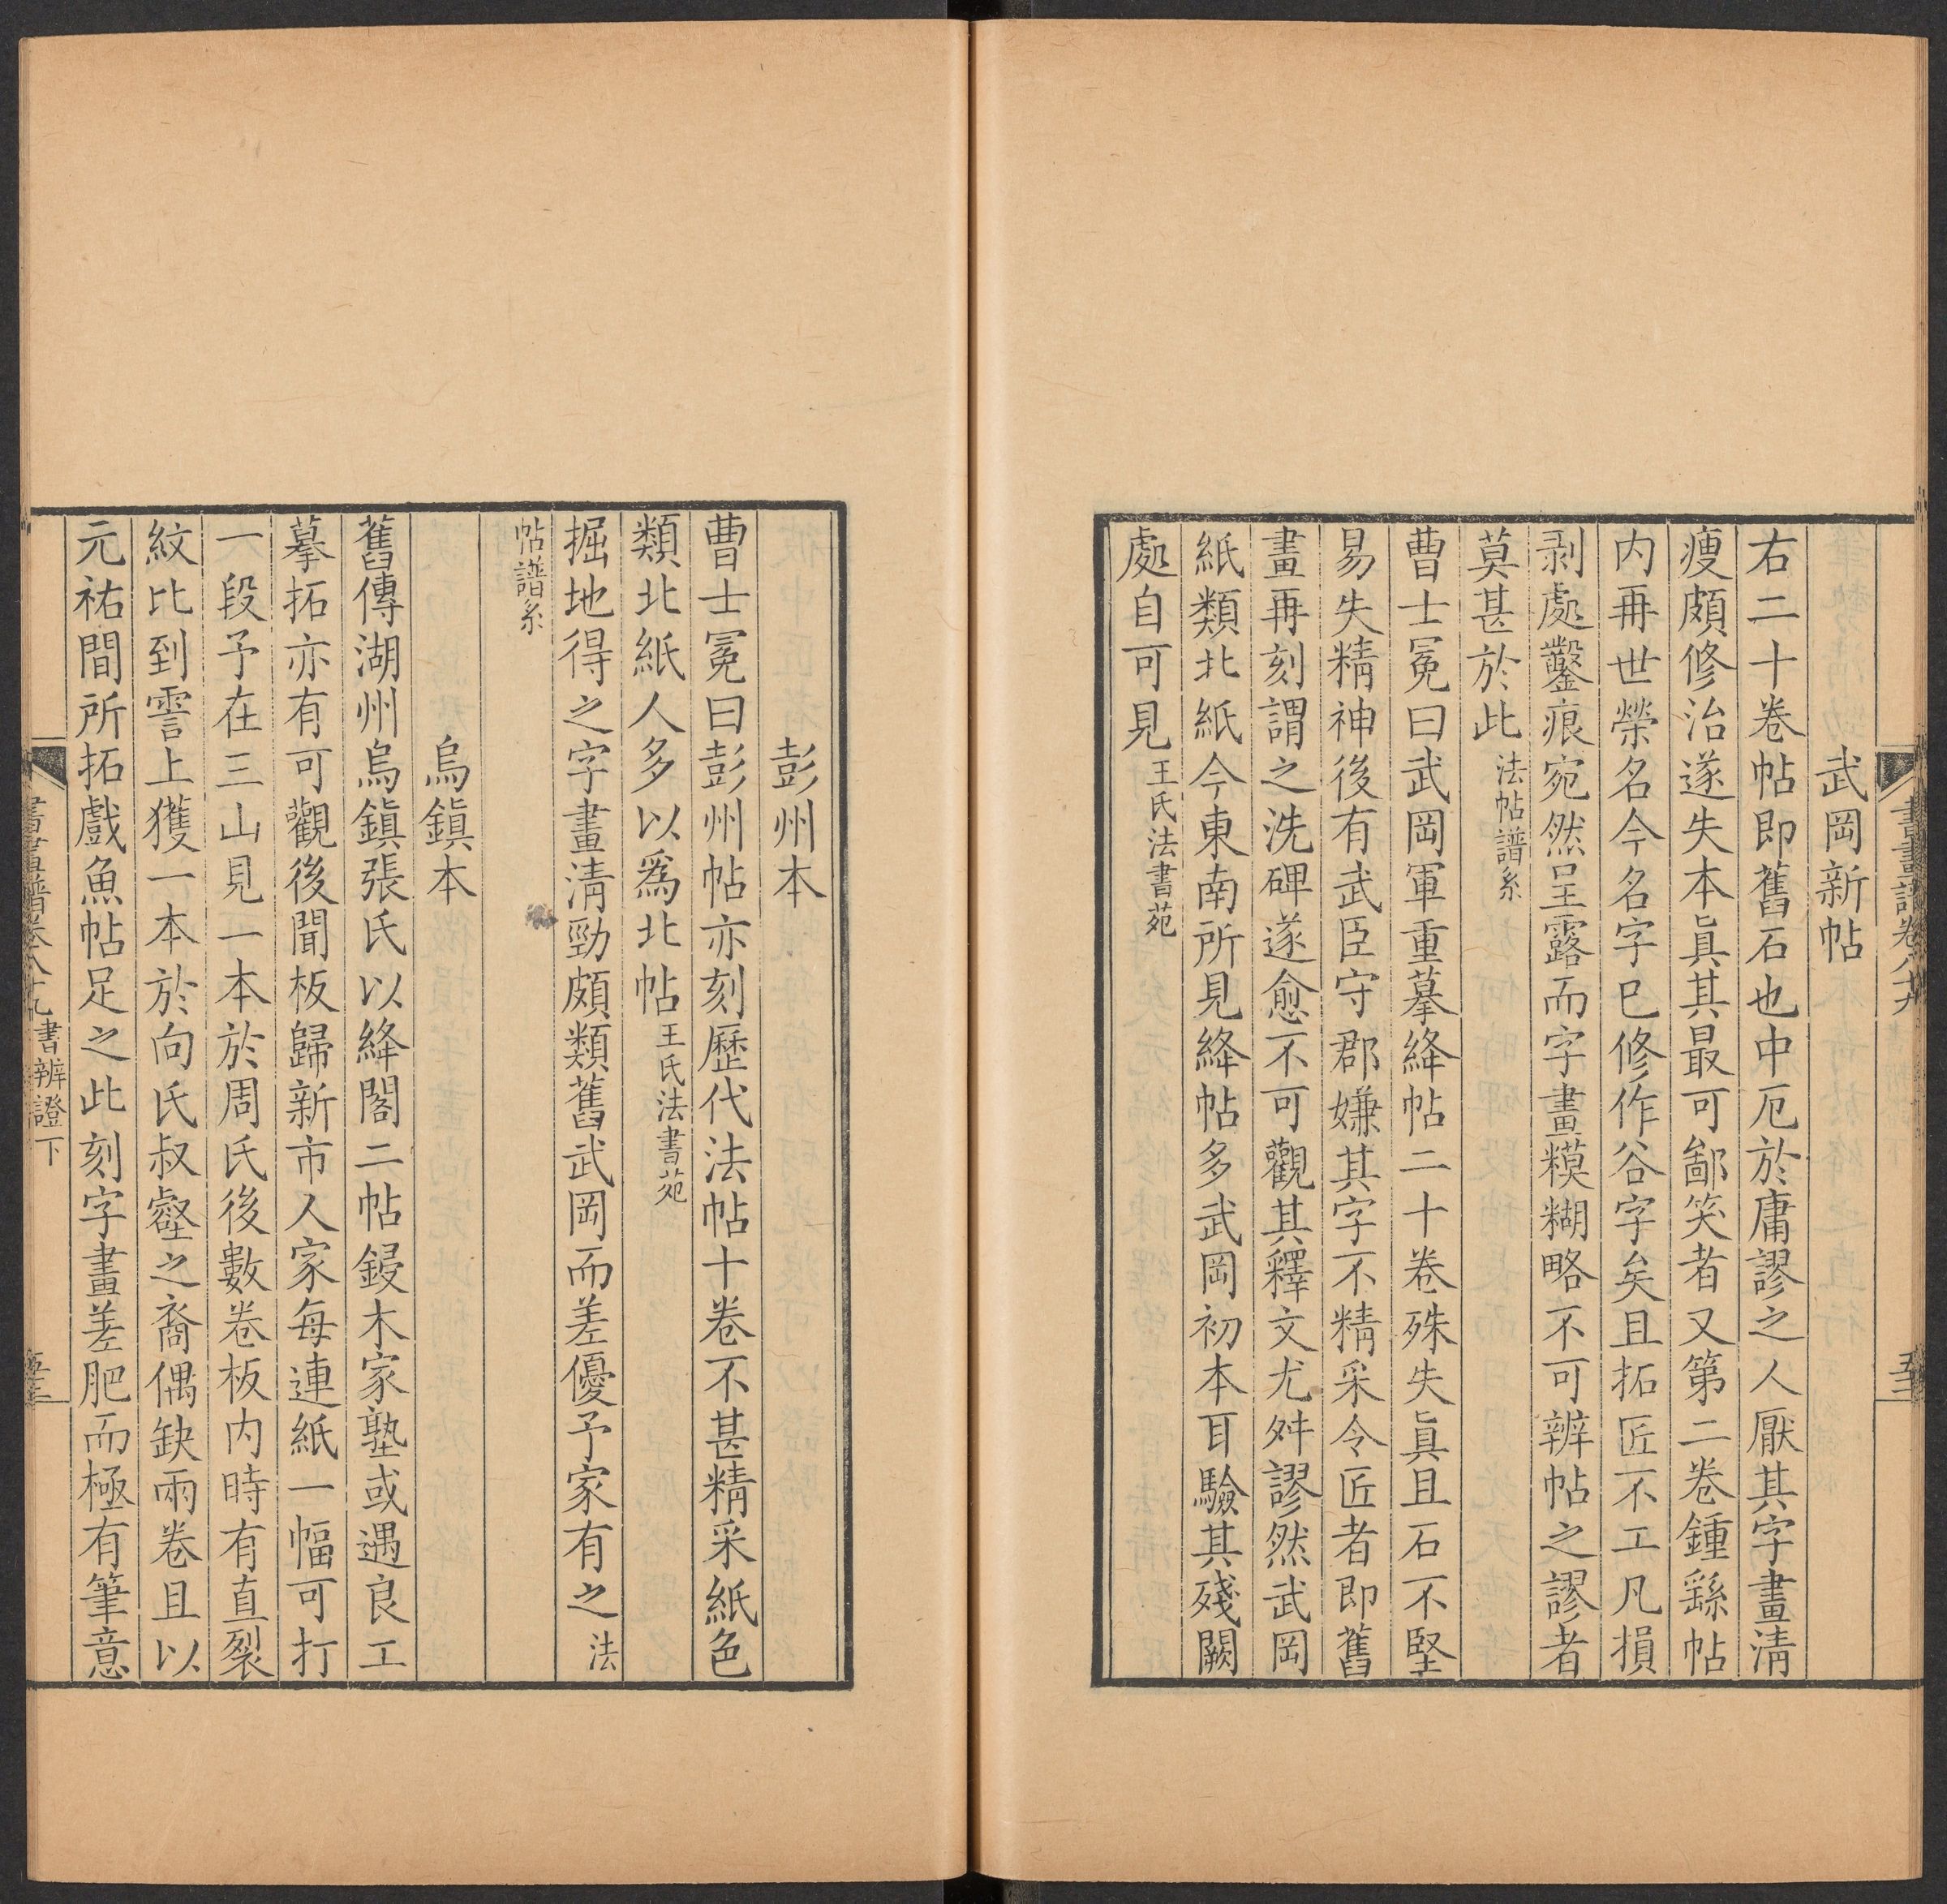 書畫譜卷八十九
五十二
武岡新帖
右二十卷帖即舊石也中厄於庸謬之人厭其字畫清
瘦頗修治遂失本眞其最可鄙笑者又第二卷鍾繇帖
内再世榮名今名字已修作谷字矣且拓匠不工凡損
剥處鑿痕宛然呈露而字畫糢糊略不可辨帖之謬者
莫甚於此法帖譜系
曹士冕曰武岡軍重摹絳帖二十卷殊失眞且石不堅
易失精神後有武臣守郡嫌其字不精采令匠者即舊
畫再刻謂之洗碑遂愈不可觀其釋文尤舛謬然武岡
紙類北紙今東南所見絳帖多武岡初本耳驗其殘闕
處自可見王氏法書苑
彭州本
曹士冕曰彭州帖亦刻歷代法帖十卷不甚精采紙色
類北紙人多以爲北帖王氏法書苑
掘地得之字畫清勁頗類舊武岡而差優予家有之法
帖譜系
烏鎮本
舊傳湖州烏鎮張氏以絳閣二帖鋟木家塾或遇良工
摹拓亦有可觀後聞板歸新市人家每連紙一幅可打
一段予在三山見一本於周氏後數卷板内時有直裂
紋比到霅上獲一本於向氏叔壑之裔偶缺兩卷且以
元祐間所拓戲魚帖足之此刻字畫差肥而極有筆意
書畫譜卷八十九書辨證下